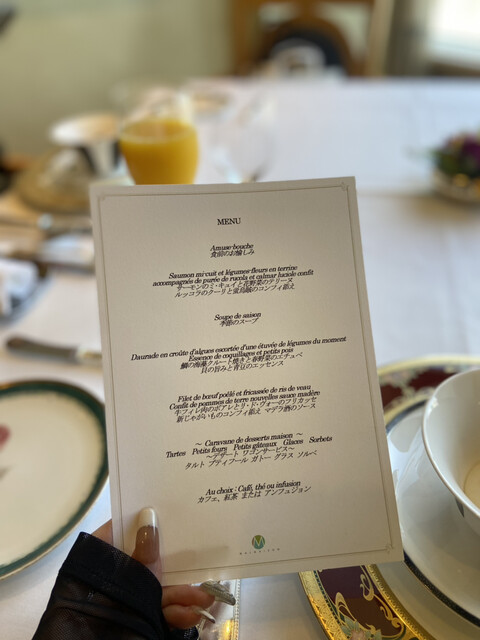 MENU
Amuse bouche
食前のお愉しみ
Saumon mi-cuit et légumes-fleurs en terrine
accompagnés de purée de rucola et calmar luciole confit
サーモンのミ・キュイと花野菜のテリーヌ
ルッコラのクーリと蛍烏賊のコンフィ添え
Soupe de saison
季節のスープ
Daurade en croûte d'algues escortée d'une étuvée de légumes du moment
Essence de coquillages et petits pois
鯛の海藻クルート焼きと春野菜のエチュベ
貝の旨みと青豆のエッセンス
Filet de bœuf poêlé et fricassée de ris de veau
Confit de pommes de terre nouvelles sauce madère
牛フィレ肉のポアレとリ・ド・ヴォーのフリカッセ
新じゃがいものコンフィ添え マデラ酒のソース
～ Caravane de desserts maison ～
Tartes Petits fours Petits gâteaux Glaces Sorbets
～デザート ワゴンサービス～
タルト プティフール ガトー グラス ソルベ
Au choix : Café, thé ou infusion
カフェ、紅茶 または アンフュジョン